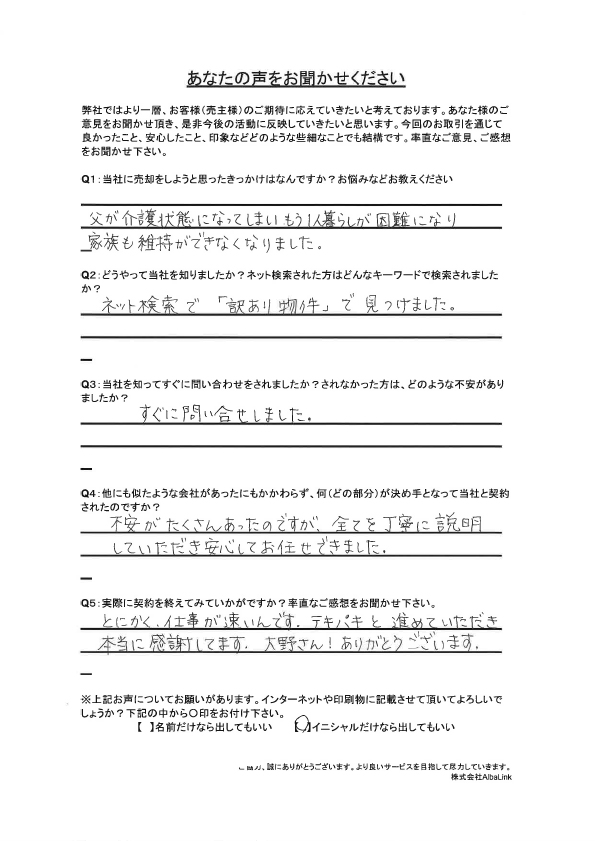 あなたの声をお聞かせください
弊社ではより一層、お客様(売主様)のご期待に応えていきたいと考えております。あなた様のご
意見をお聞かせ頂き、是非今後の活動に反映していきたいと思います。今回のお取引を通じて
良かったこと、安心したこと、印象などどのような些細なことでも結構です。率直なご意見、ご感想
をお聞かせ下さい。
Q1:当社に売却をしようと思ったきっかけはなんですか?お悩みなどお教えください
父が介護状態になってしまいもう1人暮らしが困難になり
家族も維持ができなくなりました。
Q2:どうやって当社を知りましたか?ネット検索された方はどんなキーワードで検索されました
か?
ネット検索で「訳あり物件」で見つけました。
Q3:当社を知ってすぐに問い合わせをされましたか?されなかった方は、どのような不安があり
ましたか?
すぐに問い合せしました。
Q4:他にも似たような会社があったにもかかわらず、何(どの部分)が決め手となって当社と契約
されたのですか?
不安がたくさんあったのですが、全てを丁寧に説明
していただき安心してお任せできました.
Q5:実際に契約を終えてみていかがですか?率直なご感想をお聞かせ下さい。
とにかく、仕事が速いんです.テキパキと進めていただき
本当に感謝してます.大野さん!ありがとうございます.
※上記お声についてお願いがあります。インターネットや印刷物に記載させて頂いてよろしいで
しょうか?下記の中から〇印をお付け下さい。
【 】名前だけなら出してもいい 【〇】イニシャルだけなら出してもいい
ご協力、誠にありがとうございます。より良いサービスを目指して尽力していきます。
株式会社AlbaLink